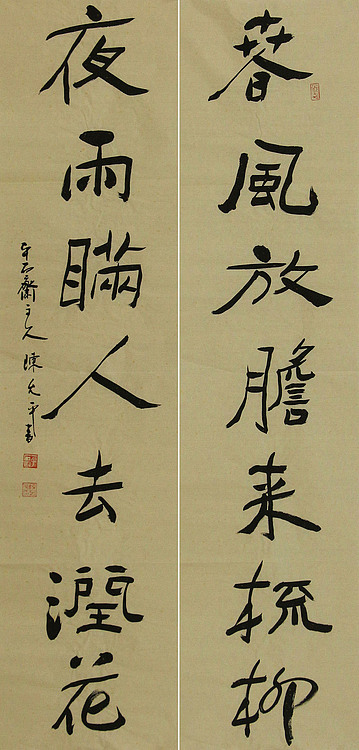 春風放膽来梳柳
夜雨瞞人去潤花
主人陳允平書